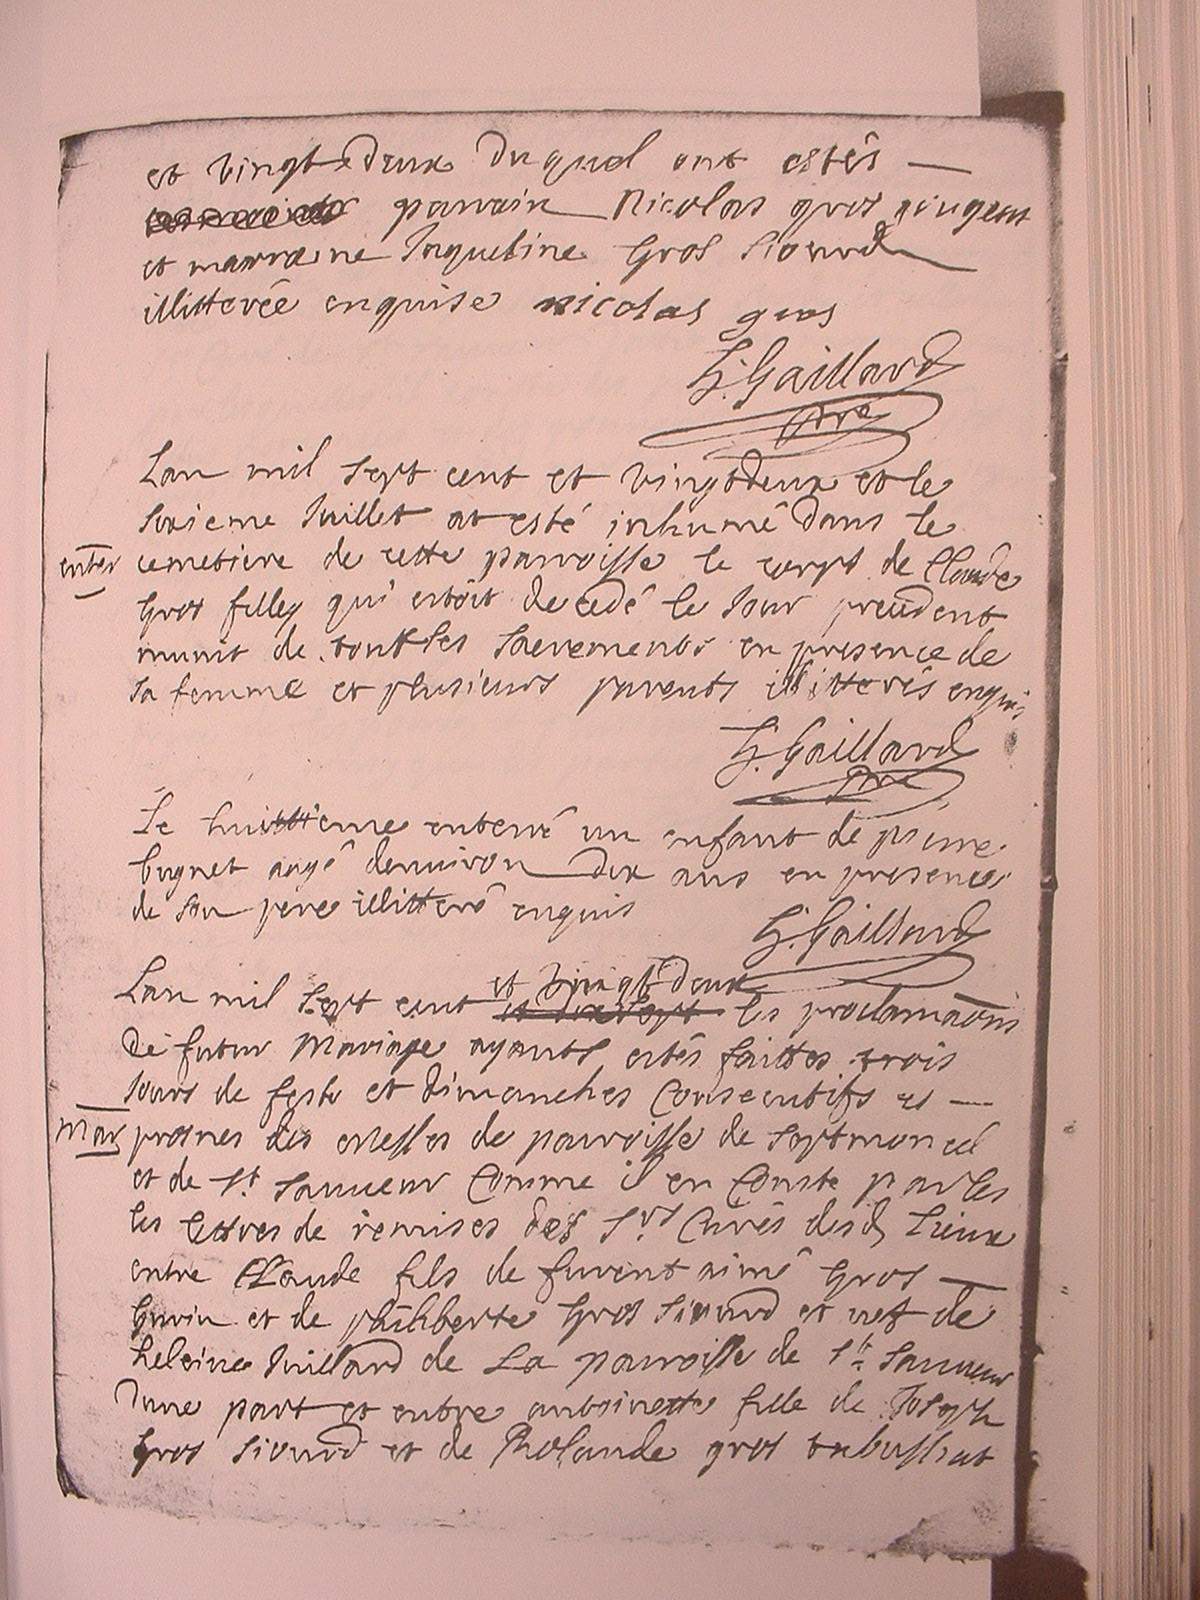 et vingt deux duquel ont estés —
parrain Nicolas gros
et marraine Jaqueline Gros Siourd
illitterée enquise nicolas gros
h. Gaillard
ptre
Lan mil sept cent et vingt deux et le
sixieme Juillet at esté inhumé dans le
enter cemetiere de cette parroisse le corps de Claude
Gros filley qui estoit decedé le Jour precedent
munit de tous les sacrements en presence de
sa femme et plusieurs parents illitterés enquis
h. Gaillard
ptre
Le huittieme enterré un enfant de pierre
bugnet aagé denuiron dix ans en presence
de son pere illitteré enquis
h. Gaillard
et vingt deux
Lan mil sept cent et dixsept les proclamaōns
de futur Mariage ayants estés faittes trois
Jours de feste et dimanches Consecutifs es —
Mar prosnes des messes de parroisse de Septmoncel
et de St Sauueur Comme il en Conste par les
les lettres de remises des Srs Curés desd Lieux
entre Claude fils de furent aimé Gros —
et de philiberte Gros Siourd et de
heleine Juillard de La parroisse de St Sauueur
dune part et entre antoinette fille de Joseph
gros siourd et de Rolande gros